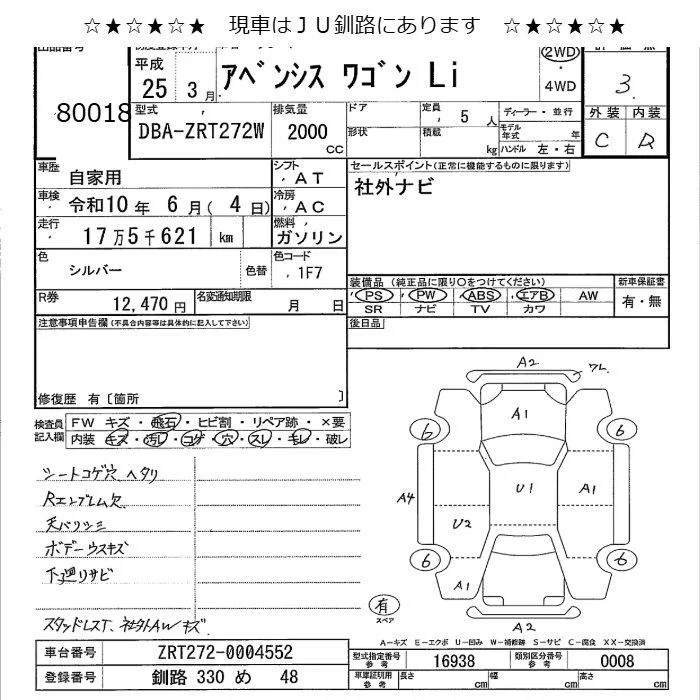 ☆★☆★☆★　現車はＪＵ釧路にあります　☆★☆★☆★
出品番号
80018
平成
25 3月
アベンシス ワゴン Li
2WD
・
4WD
評価点
3
外装 内装
C D
型式
DBA-ZRT272W
排気量
2000
CC
ドア
形状
定員
5 人
積載
kg
ディーラー・並行
モデル年式 年
ハンドル 左・右
車歴 自家用
シフト AT
車検 令和10年 6月( 4日)
冷房 AC
走行 17万5千621 km
燃料 ガソリン
色 シルバー 色替
色コード 1F7
R券 12,470円
名変通知期限 月 日
セールスポイント(正常に機能するものに限ります)
社外ナビ
装備品 (純正品に限り○をつけてください)
新車保証書
PS PW ABS エアB AW
有・無
SR ナビ TV カワ
後日品
注意事項申告欄(不具合内容等は具体的に記入して下さい)
修復歴 有〔箇所 〕
検査員記入欄
FW キズ・飛石・ヒビ割・リペア跡・×要
内装 キズ・汚レ・コゲ・穴・スレ・キレ・破レ
シートコゲ穴 ヘタリ
Rエンブレム欠
天バリシミ
ボデーウスキズ
下廻りサビ
スタッドレスT、社外AWキズ
A2 ワレ
A1
6 6
A4 U1 A1
U2
6 6
A1
A2
有
スペア
A－キズ E－エクボ U－凹み W－補修跡 S－サビ C－腐食 XX－交換済
車台番号 ZRT272-0004552
登録番号 釧路 330 め 48
型式指定番号 参考 16938
類別区分番号 参考 0008
車庫証明用 参考
長さ cm 幅 cm 高さ cm